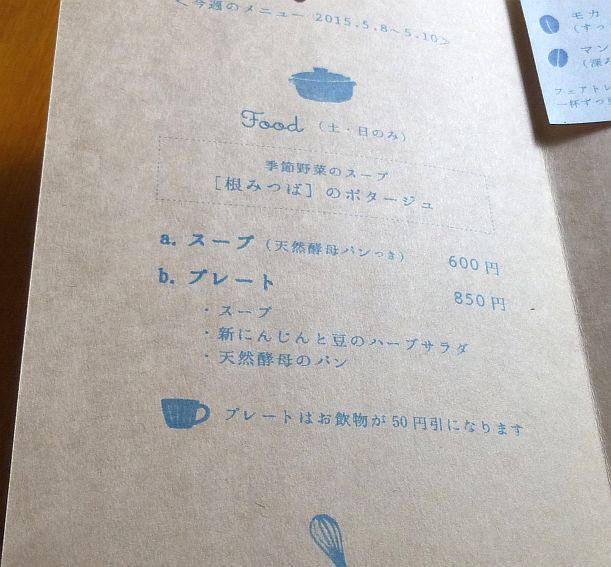 ＜今週のメニュー 2015.5.8～5.10＞
Food（土・日のみ）
季節野菜のスープ
［根みつば］のポタージュ
a. スープ（天然酵母パンつき） 600円
b. プレート 850円
・スープ
・新にんじんと豆のハーブサラダ
・天然酵母のパン
プレートはお飲物が50円引になります
モカ
（すっ
マン
（深み
フェアトレ
一杯ずつ